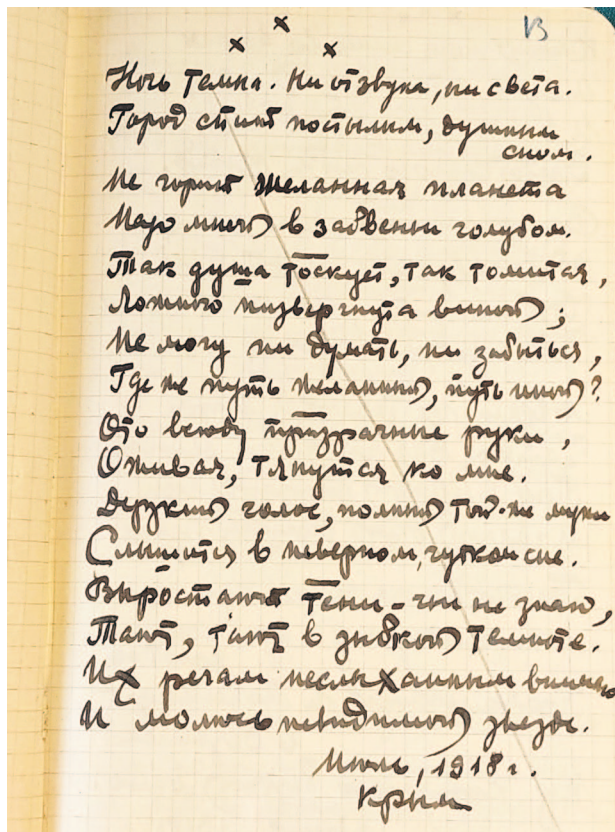 х х х
13
Ночь темна. Ни отзвука, ни света.
Город спит постылым, душным
сном.
Не горит желанная планета
Надо мной в забвеньи голубом.
Так душа тоскует, так томится,
Ложною низвергнута виной;
Не могу ни думать, ни забыться,
Где же путь желанный, путь иной?
Ото всюду призрачные руки,
Оживая, тянутся ко мне.
Дерзкий голос, полный той-же муки
Слышится в неверном, чутком сне.
Выростают тени - чьи не знаю,
Тают, тают в зыбкой темноте.
Их речам неслыханным внимаю
И молюсь невидимой звезде.
Июль, 1918 г.
Крым